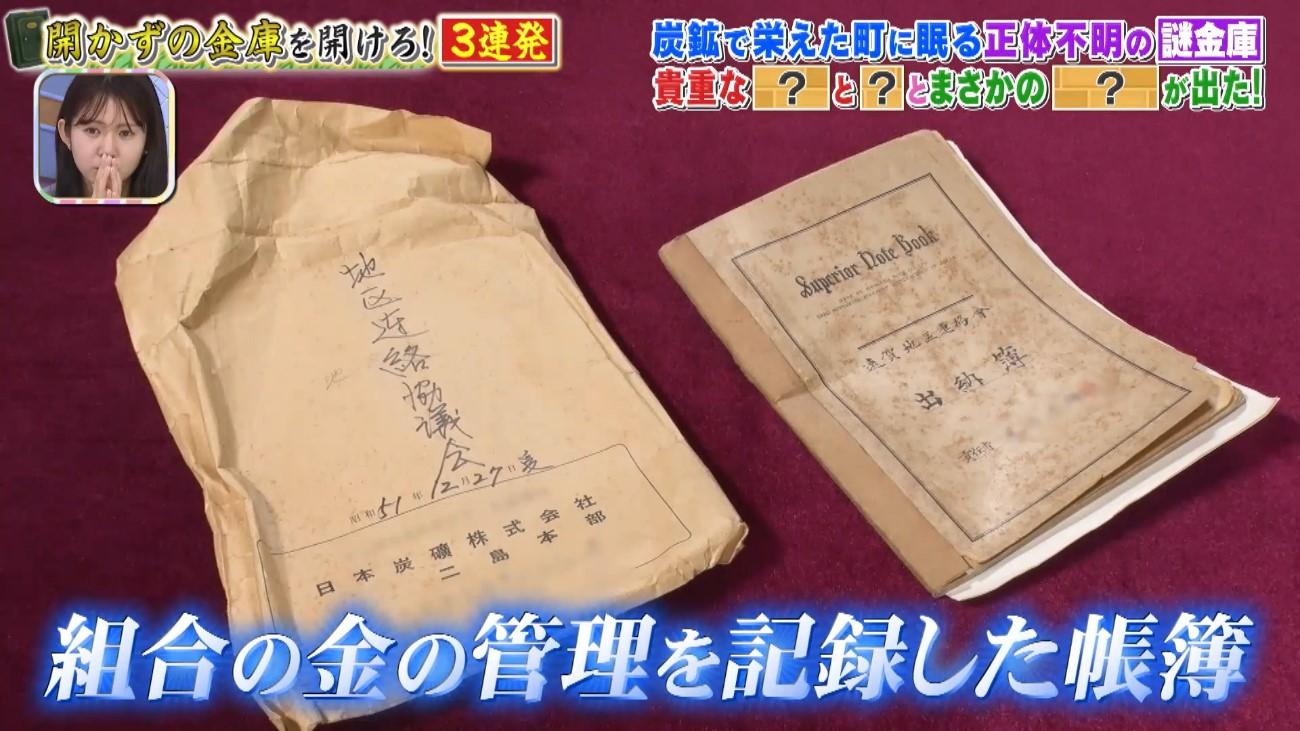 開かずの金庫を開けろ!
3連発
炭鉱で栄えた町に眠る正体不明の謎金庫
貴重な ? と ? とまさかの ? が出た!
地区連絡協議会
地
昭和51年12月27日
日本炭礦株式会社
二島本部
Superior Note Book
遠賀地区連絡會
出納簿
組合の金の管理を記録した帳簿